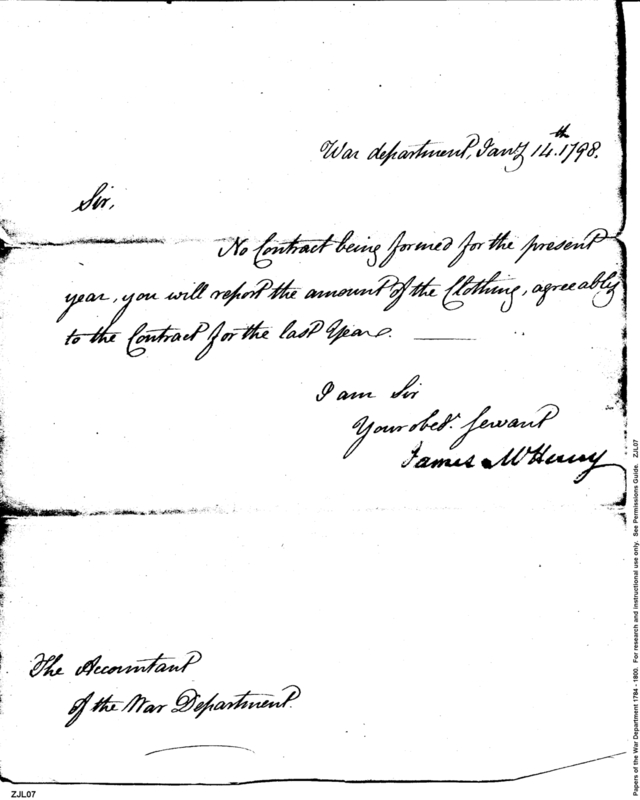 War department, Jany 14th. 1798.
Sir,
No Contract being formed for the present
year, you will report the amount of the Clothing, agreeably
to the Contract for the last Year.
I am Sir
Your obedt. Servant
James McHenry
The Accountant
of the War Department.
ZJL07
Papers of the War Department 1784 - 1800. For research and instructional use only. See Permissions Guide. ZJL07